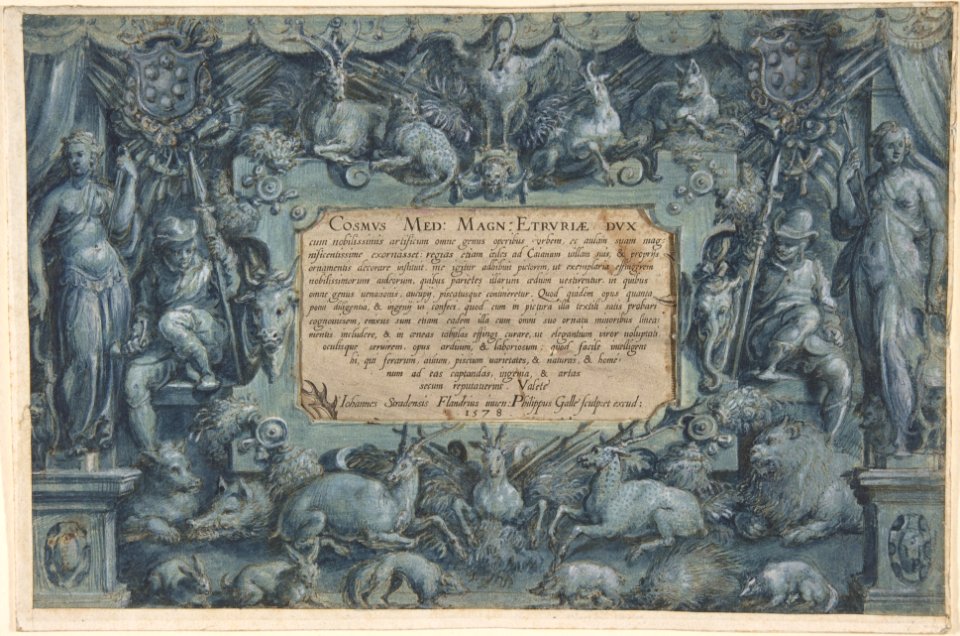 COSMVS MED: MAGN: ETRVRIÆ DVX
cum nobilissimis artificum omne genus operibus urbem et aulam suam mag
nificentissime exornasset: regias etiam ædes ad Caianum uillam suis, & proprijs
ornamentis decorare instituit. me igitur adhibuit pictorem, ut exemplaria effingerem
nobilissimorum aulæorum, quibus parietes illarum ædium uestirentur: in quibus
omne genus uenationis, aucupij, piscatusque contineretur. Quod quidem opus quanta
potui diligentia, & ingenij ui confeci. quod cum in pictura illa textili ualde probari
cognouissem, emicus sum etiam eadem illa cum omni suo ornatu minoribus linea
mentis includere, & in æneas tabulas effingi curare, ut elegantium uiror uoluptati
oculisque seruirem. opus arduum, & laboriosum; quod facile intelligent
hi, qui ferarum, auium, piscium uarietates, & naturas, & homi
num ad eas captandas, ingenia, & artes
secum reputauerint. Valete
Iohannes Stradensis Flandrius inuen: Philippus Galle sculpset excud:
1578